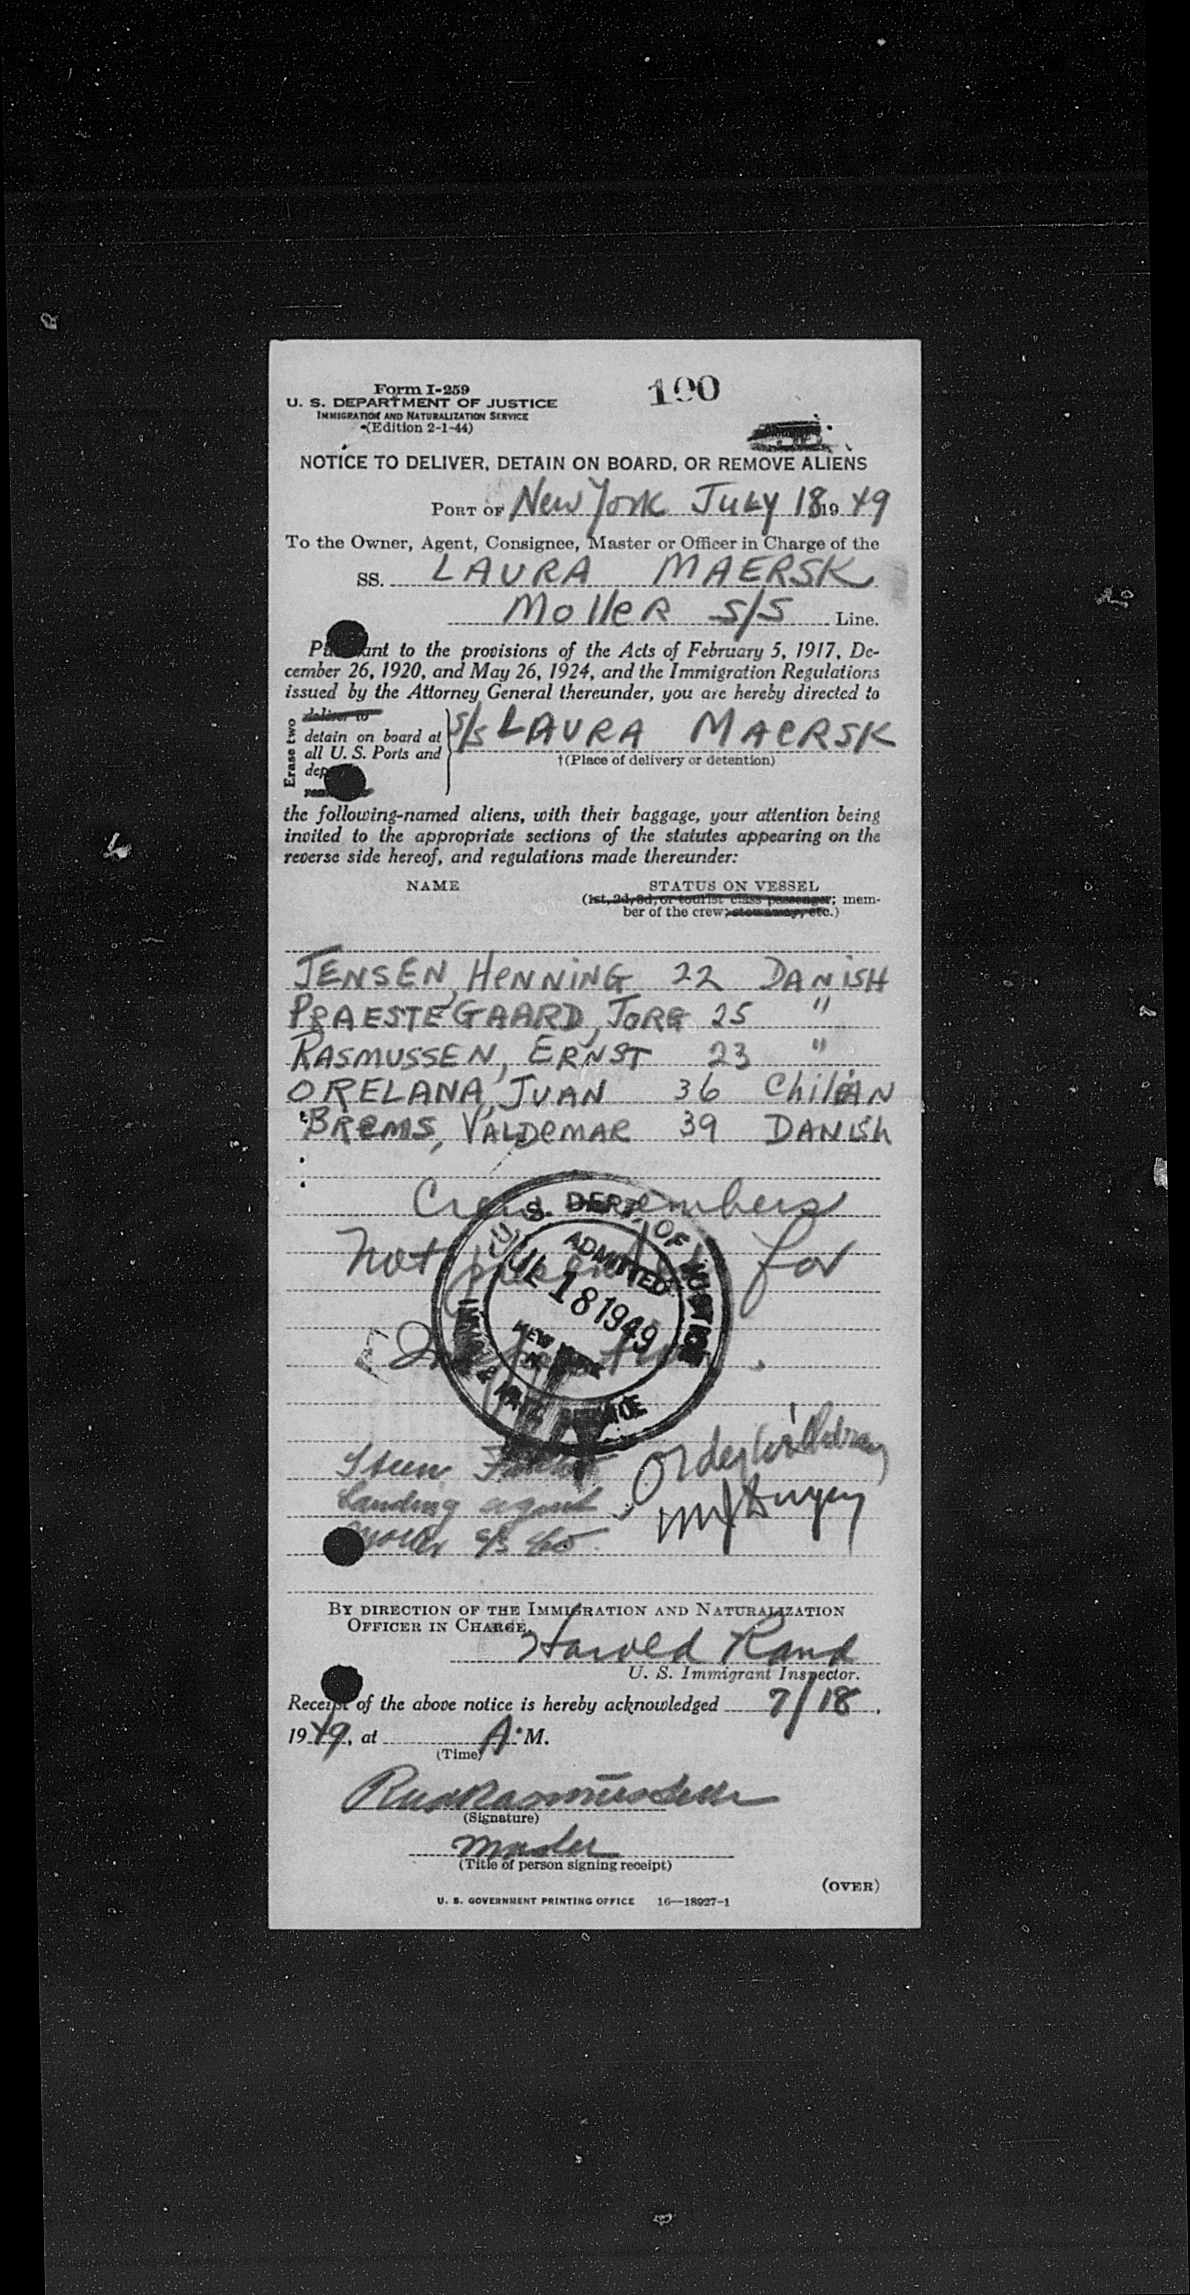 Form I-259
U. S. DEPARTMENT OF JUSTICE
IMMIGRATION AND NATURALIZATION SERVICE
(Edition 2-1-44)
190
NOTICE TO DELIVER, DETAIN ON BOARD, OR REMOVE ALIENS
PORT OF New York July 18 1949
To the Owner, Agent, Consignee, Master or Officer in Charge of the
SS. LAURA MAERSK
Moller S/S Line.
to the provisions of the Acts of February 5, 1917, De-
cember 26, 1920, and May 26, 1924, and the Immigration Regulations
issued by the Attorney General thereunder, you are hereby directed to
Erase two
deliver to
detain on board at
all U. S. Ports and
S/S LAURA MAERSK
†(Place of delivery or detention)
the following-named aliens, with their baggage, your attention being
invited to the appropriate sections of the statutes appearing on the
reverse side hereof, and regulations made thereunder:
NAME STATUS ON VESSEL
(1st, 2d, 3d, or tourist class passenger; mem-
ber of the crew; stowaway, etc.)
JENSEN, HENNING 22 DANISH
PRAESTEGAARD, JORG 25 "
RASMUSSEN, ERNST 23 "
ORELANA, JUAN 36 Chilean
BREMS, VALDEMAR 39 DANISH
Crew members
Not presented for
U. S. DEPT. OF JUSTICE
ADMITTED
JUL 18 1949
NEW YORK
IMMIG. & NATZ. SERVICE
Steen
Landing agent
Moller S/S Co.
BY DIRECTION OF THE IMMIGRATION AND NATURALIZATION
OFFICER IN CHARGE.
Harold Rand
U. S. Immigrant Inspector.
Receipt of the above notice is hereby acknowledged 7/18,
1949, at A. M.
(Time)
(Signature)
Master
(Title of person signing receipt)
(OVER)
U. S. GOVERNMENT PRINTING OFFICE 16—18927-1